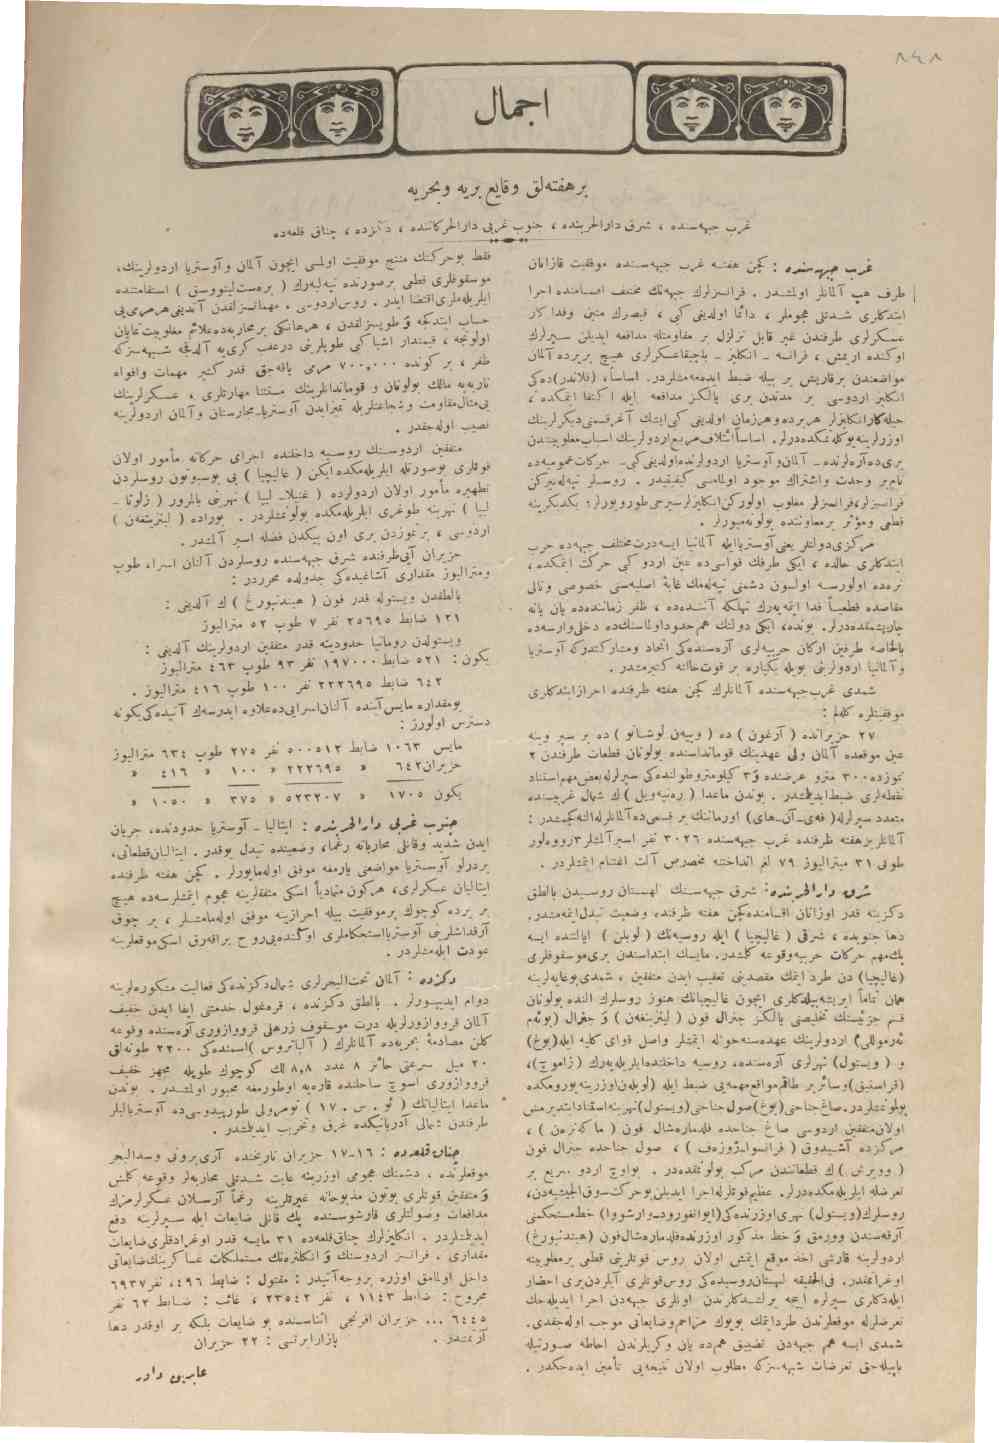 ٨٤٨
اجمال
بر هفته‌لق وقایع بریه وبحریه
غرب جبهه‌سنده ، شرق دارالحربنده ، جنوب غربی دارالحركاتنده ، دكزده ، چناق قلعه‌ده
غرب جبهه‌سنده : كچن هفته غرب جبهه‌سنده موفقیت قازانان
طرف هپ آلمانلر اولمشدر . فرانسزلرك جبهه‌نك مختلف اقسامنده اجرا
ایتدكلری شدتلی هجوملر ، دائما اولدیغی كبی ، قیصرك متین وفداكار
عسكرلری طرفندن غیر قابل تزلزل بر مقاومتله مدافعه ایدیلن سپرلرك
اوكنده اریمش ، فرانسه ـ انكلیز ـ بلجیقا عسكرلری هیچ بر یرده آلمان
مواضعندن بر قاریش بر بیله ضبط ایده‌مه‌مشلردر. اساساً، (فلاندر)ده‌كی
انكلیز اردوسی بر مدتدن بری یالكز مدافعه ایله اكتفا ایتمكده ،
حیله‌كار انكلیزلر هر یرده وهر زمان اولدیغی كبی ایشك آغر قسمنی دیكرلرینك
اوزرلرینه یوكله‌تمكده‌درلر. اساساً ائتلاف مربع اردولرینك اسباب مغلوبیتندن
بری ده آره‌لرنده ـ آلمان و آوستریا اردولرنده اولدیغی كبی ـ حركات عمومیه‌ده
تام بر وحدت واشتراك موجود اولمامسی كیفیتیدر . روسلر تپه‌له‌نیركن
فرانسزلر، فرانسزلر مغلوب اولوركن انكلیزلر سیرجی طورویورلر؛ یكدیكرینه
قطعی ومؤثر بر معاونتده بولونه‌میورلر .
مركزی دولتلر یعنی آوستریا ایله آلمانیا ایسه درت مختلف جبهه‌ده حرب
ایتدكلری حالده ، ایكی طرفك قواسی ده عین اردو كبی حركت ایتمكده ،
نره‌ده اولورسه اولسون دشمنی تپه‌له‌مك غایهٔ اصلیه‌سنی خصوصی وتالی
مقاصده قطعیاً فدا ایتمیه‌رك تهلكه آننده‌ده ، ظفر زماننده‌ده یان یانه
چارپیشمقده‌درلر. بونده، ایكی دولتك هم‌حدود اولماسنك ده دخلی وارسه ده
بالخاصه طرفین اركان حربیه‌لری آره‌سنده‌كی اتحاد ومشاركتدركه آوستریا
و آلمانیا اردولرینی بویله یكپاره بر قوت حالنه كتیرمشدر .
شمدی غرب جبهه‌سنده آلمانلرك كچن هفته ظرفنده احراز ایتدكلری
موفقیتلره كله‌لم :
٢٧ حزیرانده ( آرغون ) ده ( وییه‌ن لوشاتو ) ده بر سپر وینه
عین موقعده آلمان ولی عهدینك قوماندا‌سنده بولونان قطعات طرفندن ٢
تموزده ٣٠٠ مترو عرضنده و ٣ كیلومترو طولنده‌كی سپرلرله بعض مهم استناد
نقطه‌لری ضبط ایدلمشدر . بوندن ماعدا ( ره‌نیه‌ویل ) ك شمال غربیسنده
متعدد سپرلرله ( فه‌ی ـ آن ـ های) اورمانك بر قسمی ده آلمانلرك الله كچمشدر :
آلمانلر بر هفته ظرفنده غرب جبهه‌سنده ٣٠٢٦ نفر اسیر آلمشلر ٣ رووه‌لور
طوبی ٣١ میترالیوز ٧٩ لغم انداختنه مخصوص آلت اغتنام ایتمشلردر .
شرق دارالحربنده: شرق جبهه‌سنك لهستان روسیه‌دن بالطق
دكزینه قدر اوزانان اقسامنده كچن هفته ظرفنده وضعیت تبدل ایتمه‌مشدر.
دها جنوبده ، شرقی ( غالیچیا ) ایله روسیه‌نك ( لوبلن ) ایالتنده ایسه
پك مهم حركات حربیه وقوعه كلمشدر. مایسك ابتداسندن بری موسقوفلری
(غالیچیا) دن طرد ایتمك مقصدینی تعقیب ایدن متفقین ، شمدی بو غایه‌لرینه
همان تماماً ایریشه‌بیلدكلری ایچون غالیچیانك هنوز روسلرك النده بولونان
قسم جزئیسنك تخلیصی یالكز جنرال فون ( لیتزینغه‌ن ) و جنرال (بوئهم
ئه‌رموللی) اردولرینك عهده‌سنه حواله ایتمشلر واصل قوای كلیه ایله (بوغ)
و ( ویستول) نهرلری آره‌سنده، روسیه داخلنده ایلریله‌یه‌رك ( زاموچ )،
(قراسنیق) وسائر بر طاقم مواقع مهمه‌یی ضبط ایله (لوبلن) اوزرینه یورومكده
بولونمشلردر. صاغ جناحی (بوغ) صول جناحی (ویستول) نهرینه استناد ایتدیرمش
اولان متفقین اردوسی صاغ جناحده فلدماره‌شال فون ( ماكه‌نزه‌ن ) ،
مركزده آرشیدوق ( فرانسوا ـ ژوزه‌ف ) ، صول جناحده جنرال فون
( وویرش ) ك قطعاتندن مركب بولونمقده‌در . بو اوچ اردو سریع بر
تعرضله ایلریله‌مكده‌درلر. عظیم قوتلرله اجرا ایدیلن بو حركت سوق الجیشیه‌دن،
روسلرك (ویستول) نهری اوزرنده‌كی (ایوانغورود ـ وارشووا) خط مستحكمنی
آرقه‌سندن وورمق و خط مذكور اوزرنده فلدماره‌شال فون (هیندنبورغ)
اردولرینه قارشی اخذ موقع ایتمش اولان روس قوتلرینی قطعی بر مغلوبیته
اوغراتمقدر. فی‌الحقیقه لهستان روسیده‌كی روس قوتلری آیلردن بری احضار
ایله‌دكلری سپرلره ایچه یرلشدكلرندن اونلری جبهه‌دن اجرا ایدیله‌جك
تعرضلرله موقعلرندن طرد ایتمك بویوك مزاحم وضایعاتی موجب اوله‌جقدی.
شمدی ایسه هم جبهه‌دن تضییق هم‌ده یان وكریلرندن احاطه صورتیله
یاپیله‌جق تعرضات شبهه‌سزكه مطلوب اولان نتیجه‌یی تأمین ایده‌جكدر .
فقط بو حركتك منتج موفقیت اولمسی ایچون آلمان و آوستریا اردولرینك،
موسقوفلری قطعی بر صورتده تپه‌لیه‌رك ( بره‌ست لیتووسق ) استقامتنده
ایلریله‌ملری اقتضا ایدر . روس اردوسی . مهماتسزلقدن آتدیغی هر مرمی‌یی
حساب ایتدكجه و طوپسزلقدن ، هر هانكی بر محاربه‌ده علائم مغلوبیت نمایان
اولونجه ، قیمتدار اشیا كبی طوپلرینی درعقب كری‌یه آلدقجه شبهه‌سزكه
ظفر ، بر كونده ٧٠٠,٠٠٠ مرمی یاقه‌جق قدر كثیر مهمات وافواه
ناریه‌یه مالك بولونان و قوماندانلرینك مستثنا مهارتلری ، عسكرلرینك
بی‌مثال مقاومت وشجاعتلریله تمیز ایدن آوستریا ـ مجارستان و آلمان اردولرینه
نصیب اوله‌جقدر .
متفقین اردوسنك روسیه داخلنده اجرای حركاته مأمور اولان
قوللری بو صورتله ایلریله‌مكده ایكن ( غالیچیا ) یی بوسبوتون روسلردن
تطهیره مأمور اولان اردولرده ( غنیلا ـ لیپا ) نهرینی بالمرور ( زلوتا ـ
لیپا ) نهرینه طوغری ایلریله‌مكده بولونمشلردر . بوراده ( لیتزینغه‌ن )
اردوسی ، بر تموزدن بری اون بیكدن فضله اسیر آلمشدر .
حزیران آیی ظرفنده شرق جبهه‌سنده روسلردن آلنان اسرا، طوپ
ومترالیوز مقداری آشاغیده‌كی جدولده محرردر :
بالطقدن ویستوله قدر فون ( هیندنبورغ ) ك آلدیغی :
١٢١ ضابط ٢٥٦٩٥ نفر ٧ طوپ ٥٢ مترالیوز
ویستولدن رومانیا حدودینه قدر متفقین اردولرینك آلدیغی :
یكون : ٥٢١ ضابط ١٩٧٠٠٠ نفر ٩٣ طوپ ٤٦٣ مترالیوز
٦٤٢ ضابط ٢٢٢٦٩٥ نفر ١٠٠ طوپ ٤١٦ مترالیوز .
بو مقداره مایس آینده آلنان اسرایی ده علاوه ایدرسه‌ك آتیده‌كی یكونه
دسترس اولورز :
مایس ١٠٦٣ ضابط ٣٠٠٥١٢ نفر ٢٧٥ طوپ ٦٣٤ مترالیوز
حزیران ٦٤٢ » ٢٢٢٦٩٥ » ١٠٠ » ٤١٦ »
یكون ١٧٠٥ » ٥٢٣٢٠٧ » ٣٧٥ » ١٠٥٠ »
جنوب غربی دارالحربنده : ایتالیا ـ آوستریا حدودنده، جریان
ایدن شدید وقانلی محارباته رغماً، وضعیتده تبدل یوقدر . ایتالیان قطعاتی،
بر درلو آوستریا مواضعنی یارمغه موفق اوله‌مایورلر . كچن هفته ظرفنده
ایتالیان عسكرلری، هركون متمادیاً اسكی متفقلرینه هجوم ایتمشلرسه‌ده هیچ
بر یرده كوچوك بر موفقیت بیله احرازینه موفق اوله‌مامشلر ، بر چوق
آرقداشلرینی آوستریا استحكاملری اوكنده بی‌روح براقه‌رق اسكی موقعلرینه
عودت ایله‌مشلردر .
دكزده : آلمان تحت‌البحرلری شمال دكزنده‌كی فعالیت متكوره‌لرینه
دوام ایدییورلر . بالطق دكزنده ، قره‌غول خدمتنی ایفا ایدن خفیف
آلمان قرووازورلریله درت موسقوف زرهلی قرووازوری آره‌سنده وقوعه
كلن مصادمهٔ بحریه‌ده آلمانلرك ( آلباتروس ) اسمنده‌كی ٢٢٠٠ طونه‌لق
٢٠ میل سرعتی حائز ٨ عدد ٨,٨ لك كوچوك طوپله مجهز خفیف
قرووازوری اسوچ ساحلنده قاره‌یه اوطورمغه مجبور اولمشدر . بوندن
ماعدا ایتالیانك ( ئو . س . ١٧ ) نومرولی طورپیدوسی ده آوستریالیلر
طرفندن شمالی آدریاتیكده غرق وتخریب ایدیلمشدر .
چناق قلعه‌ده : ١٦-١٧ حزیران تاریخنده آری‌برونی وسدالبحر
موقعلرنده ، دشمنك هجومی اوزرینه غایت شدتلی محاربه‌لر وقوعه كلمش
و متفقین قوتلری بوتون مذبوحانه غیرتلرینه رغماً آرسلان عسكرلرمزك
مدافعات وصولتلری قارشوسنده پك قانلی ضایعات ایله سپرلرینه دفع
ایدیلمشلردر . انكلیزلرك چناق قلعه‌ده ٣١ مایسه قدر اوغرادقلری ضایعات
مقداری . فرانسز اردوسنك و انكلتره‌نك مستملكات عساكرینك ضایعاتی
داخل اولمامق اوزره بر وجه آتیدر : مقتول : ضابط ٤٩٦، نفر ٦٩٣٧
مجروح : ضابط ١١٤٣ ، نفر ٢٣٥٤٢ ، غائب : ضابط ٦٣ نفر
٦٤٤٥ ... حزیران افرنجی اثناسنده بو ضایعات بلكه بر اوقدر دها
آرتمشدر . پازار ایرتسی : ٢٢ حزیران
عابدین داور